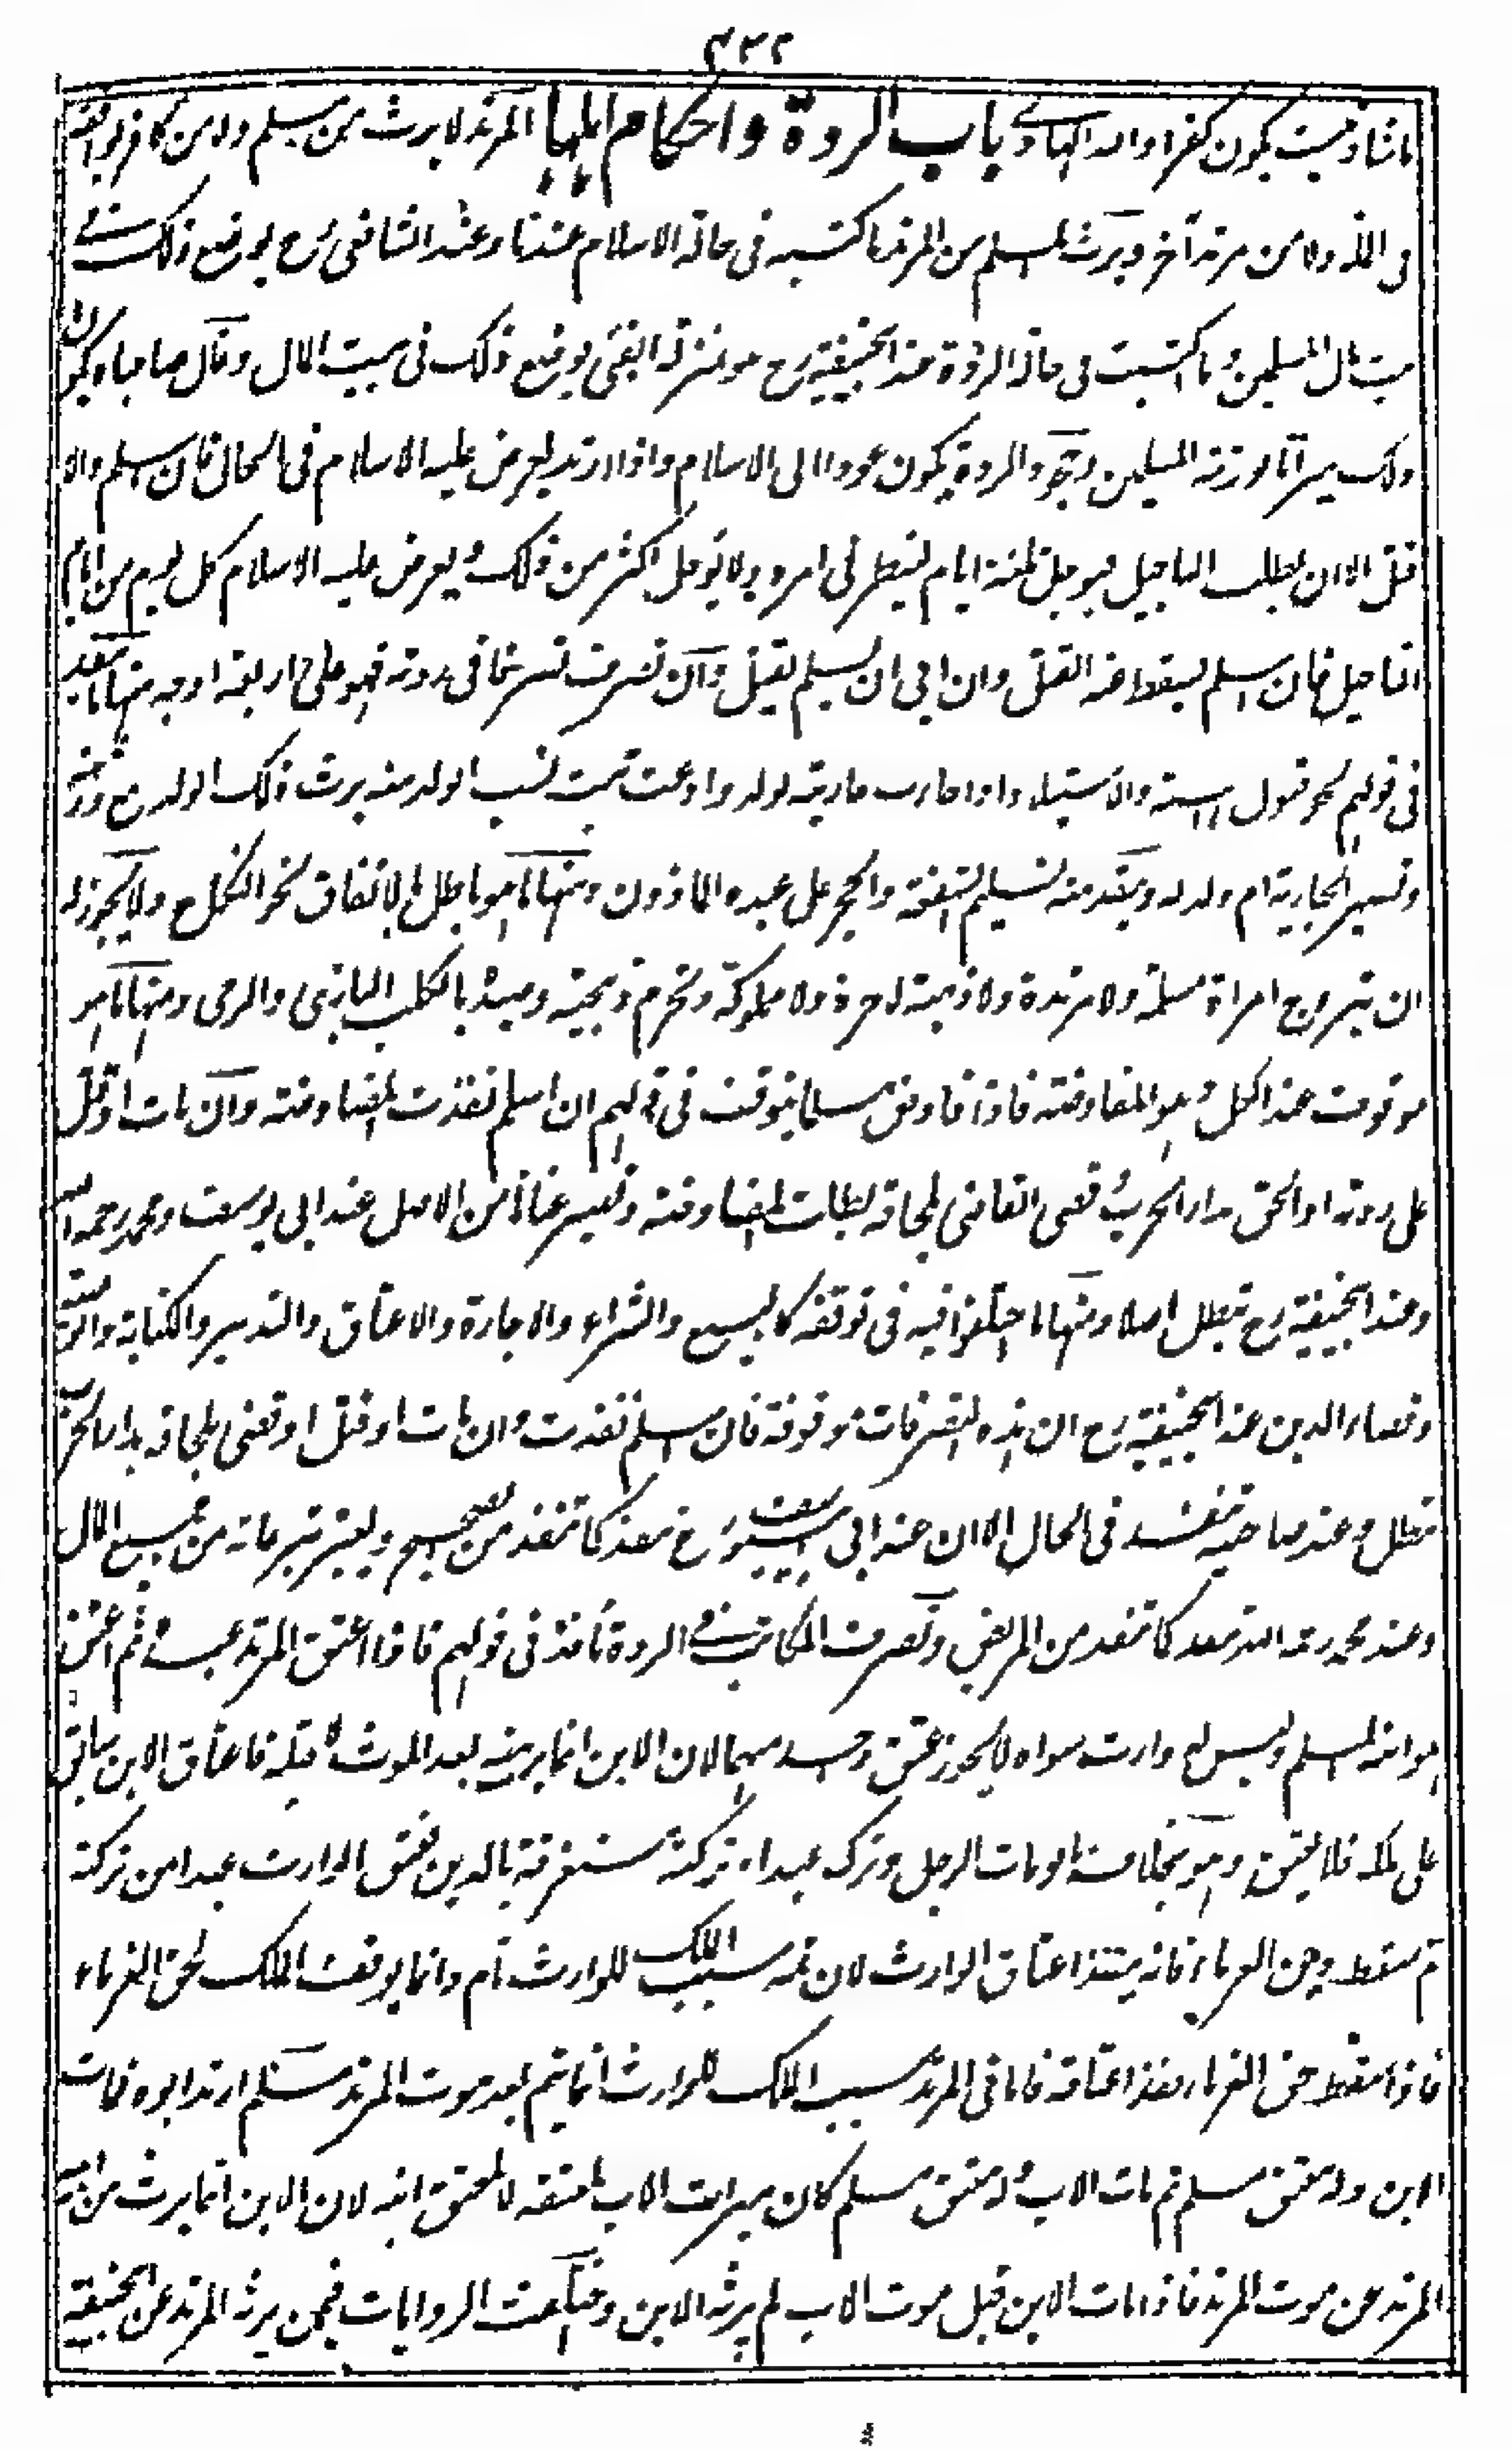 ٤٣٢
ما شاء حيث يكون كفرا والله الهادي باب الردة واحكام اهلها المرتد لا يرث من مسلم ولا من كافر يوافقه
فى الملة ولا من مرتد آخر ويرث المسلم من المرتد ما اكتسبه فى حالة الاسلام عندنا وعند الشافعى رح يوضع ذلك في
بيت مال المسلمين وما اكتسبت فى حالة الردة عند ابيحنيفة رح هو بمنزلة الفئ يوضع ذلك فى بيت المال وقال صاحباه يكون
ذلك ميراثا لورثة المسلمين وجحود الردة يكون عودا الى الاسلام واذا ارتد يعرض عليه الاسلام فى الحال فان اسلم والا
قتل الا ان يطلب التاجيل فيوجل ثلثة ايام لينظر فى امره ولا يؤجل اكثر من ذلك ويعرض عليه الاسلام كل يوم من ايام
التاجيل فان اسلم يسقط عنه القتل وان ابى ان يسلم يقتل وان تصرف تصرفا فى ردته فهو على اربعة اوجه منها ما ينفذ
فى قولهم نحو قبول الهبة والاستيلاد واذا جاءت جارية بولد وادعت ثبت نسب الولد منه يرث ذلك الولد مع ورثته
وتصير الجارية ام ولد له وينفذ منه تسليم الشفعة والحجر على عبده الماذون ومنها ما هو باطل بالاتفاق نحو النكاح ولا يجوز له
ان يتزوج امراة مسلمة ولا مرتدة ولا ذمية لا حرة ولا مملوكة وتحرم ذبيحته وصيده بالكلب البازى والرمى ومنها ما هو
موقوف عند الكل وهو المفاوضة فاذا فاوض مسلما يتوقف فى قولهم ان اسلم نفذت المفاوضة وان مات او قتل
على ردته او الحق بدار الحرب وقضى القاضى بلحاقه بطلت المفاوضة وتصير عنانا من الاصل عند ابى يوسف ومحمد رحمه الله
وعند ابيحنيفة رح تبطل اصلا ومنها ما اختلفوا فيه فى توقفه كالبيع والشراء والاجارة والاعتاق والتدبير والكتابة والوصية
وقضاء الدين عند ابيحنيفة رح ان هذه التصرفات موقوفة فان اسلم نفذت وان مات او قتل او قضى بلحاقه بدار الحرب
تبطل وعند صاحبيه تنفذ فى الحال الا ان عند ابى يوسف رح تنفذ كما تنفذ من الصحيح ويعتبر تبرعاته من جميع المال
وعند محمد رحمه الله تنفذ كما تنفذ من المريض وتصرف المكاتب في الردة نافذ فى قولهم فاذا اعتق المرتد عبده ثم اعتق
هو ابنه المسلم وليس له وارث سواه لا يجوز عتق واحد منهما لان الابن انما يرثه بعد الموت لا قبله فاعتاق الابن سابق
على ملكه فلا يعتق وهو بخلاف ما لو مات الرجل وترك عبدا وتركته مستغرقة بالدين فعتق الوارث عبدا من تركته
ثم سقط دين الغرماء فانه ينفذ اعتاق الوارث لان ثمه سبب الملك للوارث تام وانما يوقف الملك لحق الغرماء
فاذا سقط حق الغرماء نفذ اعتاقه فاما فى المرتد سبب الملك للوارث انما يتم بعد موت المرتد مسلم ارتد ابوه فمات
الابن وله معتق مسلم ثم مات الاب وله معتق مسلم كان ميراث الاب لمعتقه لا لمعتق ابنه لان الابن انما يرث من ابيه
المرتد عن موت المرتد فاذا مات الابن قبل موت الاب لم يرثه الابن واختلفت الروايات فيمن يرث المرتد عن ابيحنيفة